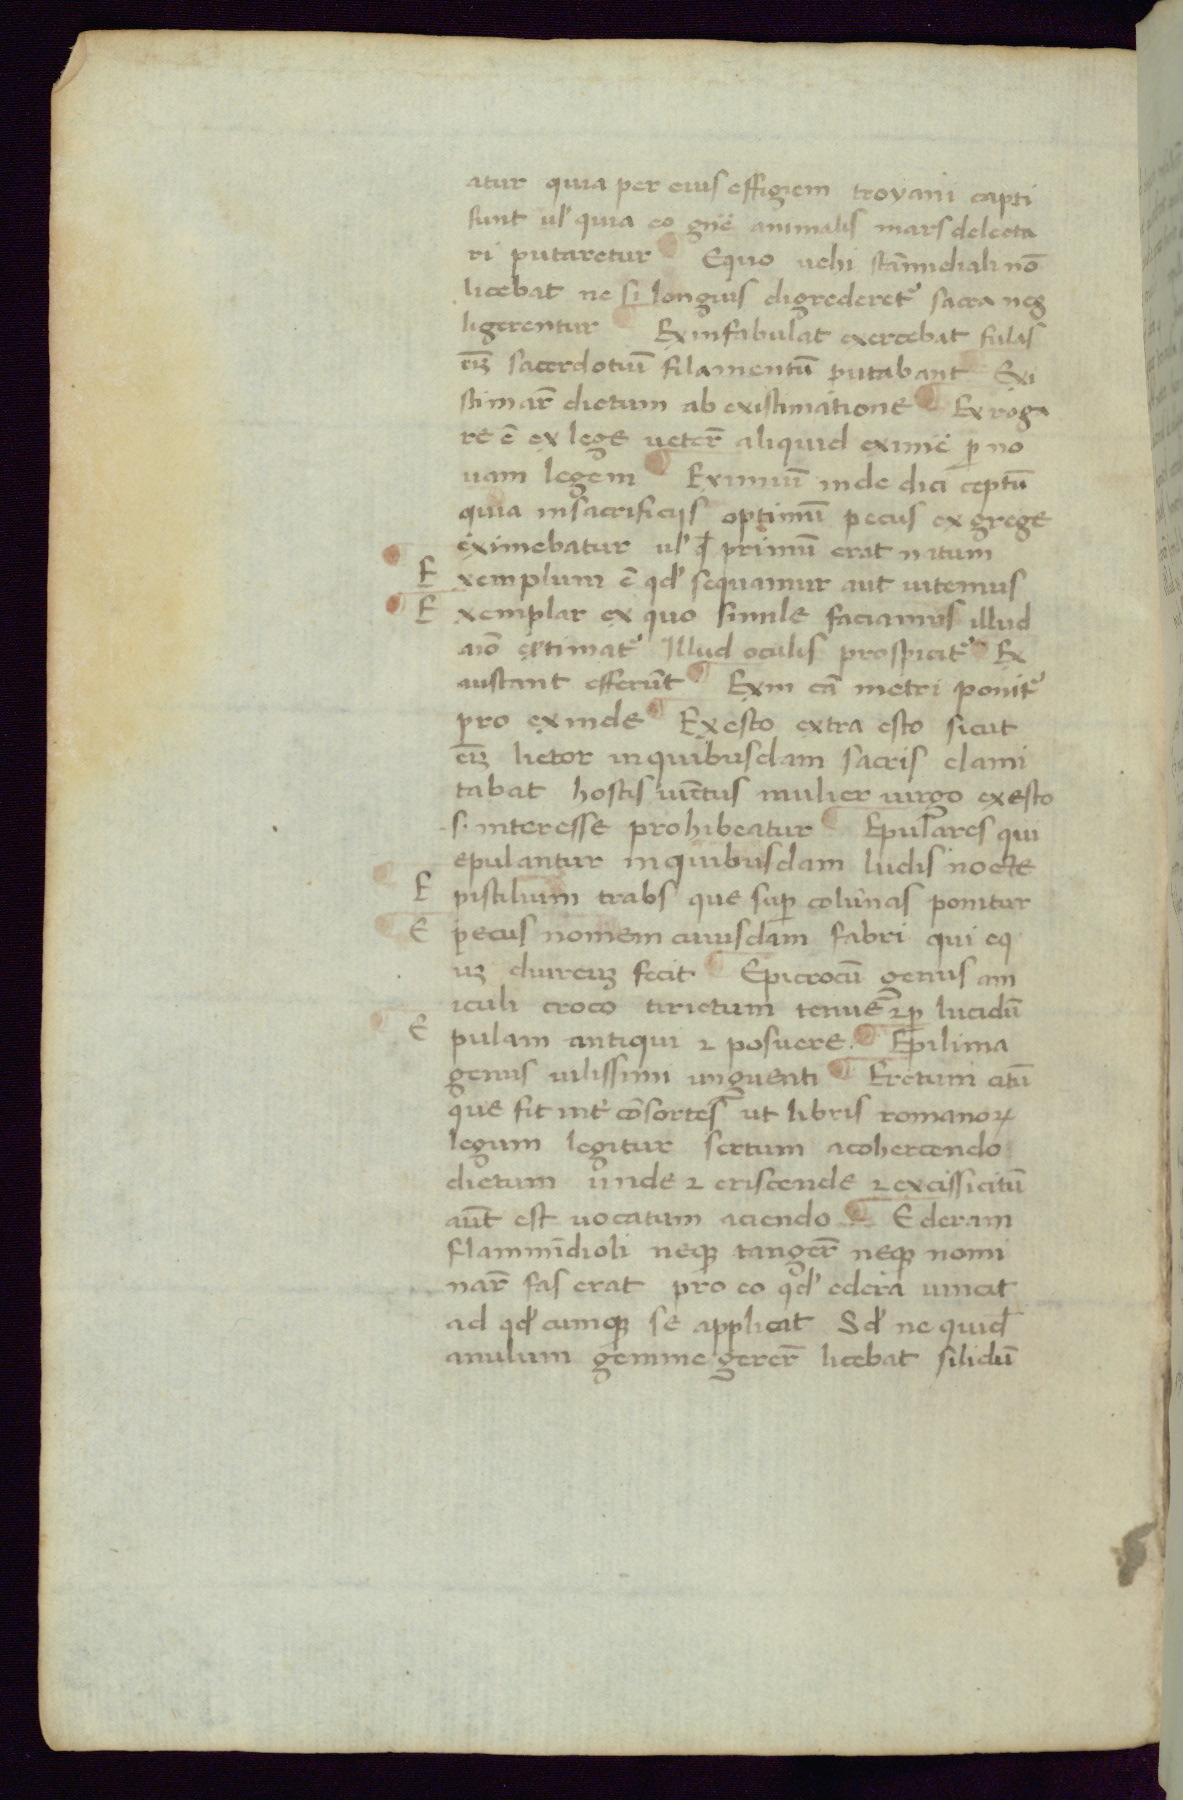 atur quia per eius effigiem troyani capti
sunt ul' quia eo gñe animalis mars delecta
ri putaretur Equo uehi flāmidiali nō
licebat ne si longius digrederet' sacra neg
ligerentur Exinfabulat exercebat fulis
eīz sacerdotiū filamentū putabant Exi
stimar̄ dictum ab existimatione Ex roga
re ē ex lege ueter̄ aliquid eximē p no
uam legem Eximiū inde dici ceptū
quia insacrificijs optimū pecus ex grege
eximebatur ul' q̄ primū erat natum
Exemplum ē qd' sequamur aut uitemus
Exemplar ex quo simile faciamus illud
aīo estimat' Illud oculis prospicit' Ex
austant efferūt Exin cā metri ponit'
pro exinde Exesto extra esto sicut
eīz lictor inquibusdam sacris clami
tabat hostis uīctus mulier uirgo exesto
s. interesse prohibeatur Epulares qui
epulantur inquibusdam ludis nocte
Epistilium trabs que sup colūnas ponitur
Epecus nomem cuiusdam fabri qui eq
uz dureuz fecit Epicrocū genus am
iculi croco tirictum tenue ⁊ p lucidū
Epulam antiqui ⁊ posuere. Epilima
genus uilissimi unguenti Erctum citū
que fit int' cōsortes ut libris romanoꝝ
legum legitur sertum acohercendo
dictum unde ⁊ eriscende ⁊ excissicitū
aūt est uocatum aciendo Ederam
flammīdioli neqꝫ tanger̄ neqꝫ nomi
nar̄ fas erat pro eo qd' edera uincit
ad qd' cumqꝫ se applicat Sd' ne quid̄
anulum gemme gerer̄ licebat silidū